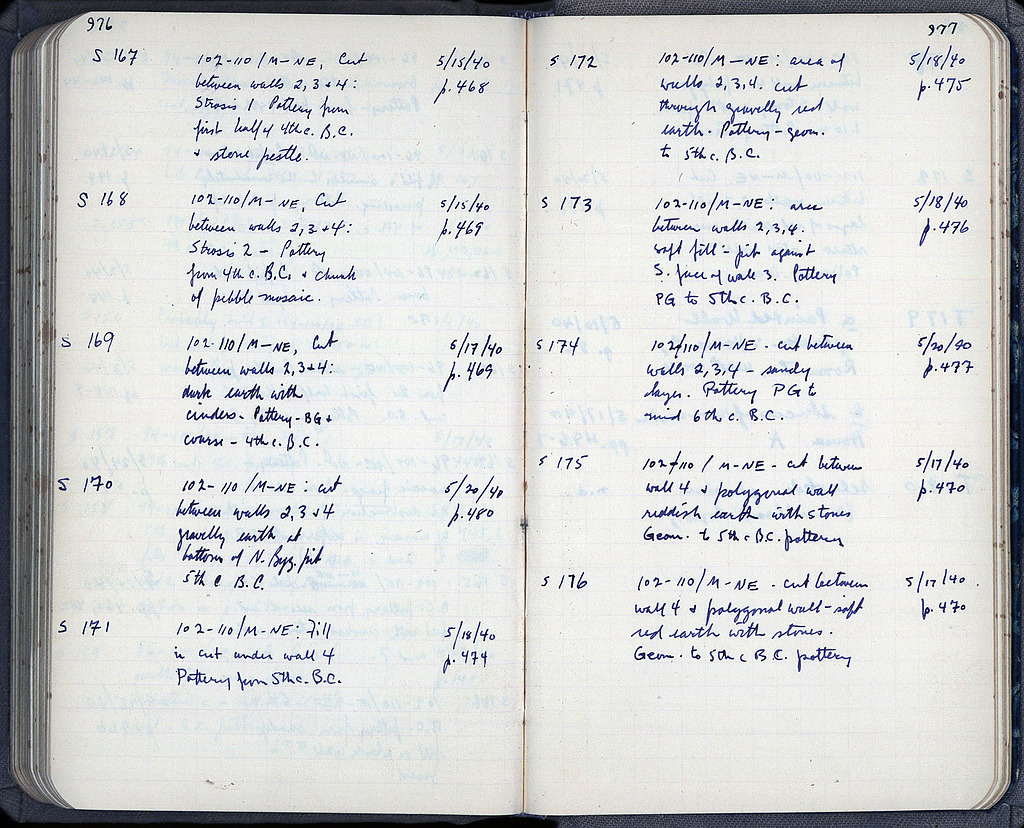 976
S 167 102-110/M-NE, Cut 5/15/40
between walls 2, 3 + 4: p. 468
Strosis - Pottery from
first half of 4th c. B.C.
+ stone pestle.
S 168 102-110/M-NE, Cut 5/15/40
between walls 2, 3 + 4: p. 469
Strosis 2 - Pottery
from 4th c. B.C. + chunk
of pebble mosaic.
S 169 102-110/M-NE, Cut 5/17/40
between walls 2, 3 + 4: p. 469
dark earth with
cinders - Pottery - BG +
coarse - 4th c. B.C.
S 170 102-110/M-NE: cut 5/20/40
between walls 2, 3 + 4 p. 480
gravelly earth at
bottom of N. Byz. pit
5th c B.C.
S 171 102-110/M-NE: Fill 5/18/40
in cut under wall 4 p. 474
Pottery from 5th c. B.C.
977
S 172 102-110/M-NE: area of 5/18/40
walls 2, 3, 4. cut p. 475
through gravelly red
earth. Pottery - geom.
to 5th c. B.C.
S 173 102-110/M-NE: area 5/18/40
between walls 2, 3, 4. p. 476
soft fill - pit against
S. face of wall 3. Pottery
PG to 5th c. B.C.
S 174 102/110/M-NE - cut between 5/20/40
walls 2, 3, 4 - sandy p. 477
layer. Pottery PG to
mid 6th c. B.C.
S 175 102/110/M-NE - cut between 5/17/40
wall 4 + polygonal wall p. 470
reddish earth with stones
Geom. to 5th c B.C. pottery
S 176 102-110/M-NE - cut between 5/17/40.
wall 4 + polygonal wall - soft p. 470
red earth with stones.
Geom. to 5th c B.C. pottery